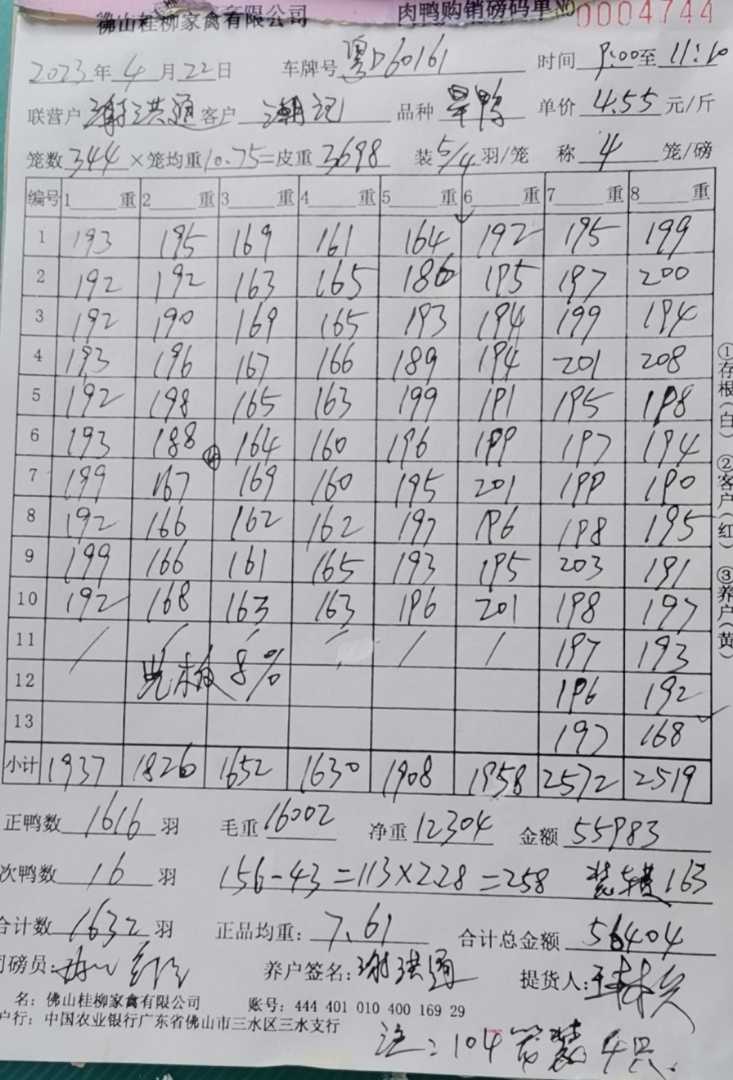 佛山桂柳家禽有限公司 肉鸭购销磅码单 NO 0004744
2023年4月22日 车牌号 粤D60161 时间 9:00至11:10
联营户 谢洪通 客户 潮记 品种 旱鸭 单价 4.55 元/斤
笼数 344 ×笼均重 10.75 =皮重 3698 装 5/4 羽/笼 称 4 笼/磅
编号 1 重 2 重 3 重 4 重 5 重 6 重 7 重 8 重
1 193 195 169 161 164 192 195 199
2 192 192 163 165 186 195 197 200
3 192 190 169 165 193 194 199 194
4 193 196 167 166 189 194 201 208
5 192 198 165 163 199 191 195 198
6 193 188 164 160 196 199 197 194
7 199 167 169 160 195 201 199 190
8 192 166 162 162 197 196 198 195
9 199 166 161 165 193 195 203 191
10 192 168 163 163 196 201 198 197
11 / / / / / / 197 193
12 8% 196 192
13 197 168
小计 1937 1826 1652 1630 1908 1958 2572 2519
正鸭数 1616 羽 毛重 16002 净重 12304 金额 55983
次鸭数 16 羽 156-43=113×228=258 163
合计数 1632 羽 正品均重: 7.61 合计总金额 56404
司磅员: 养户签名: 谢洪通 提货人:
名: 佛山桂柳家禽有限公司 账号: 444 401 010 400 169 29
户行: 中国农业银行广东省佛山市三水区三水支行
注: 104 笼装4只
①存根(白) ②客户(红) ③养户(黄)